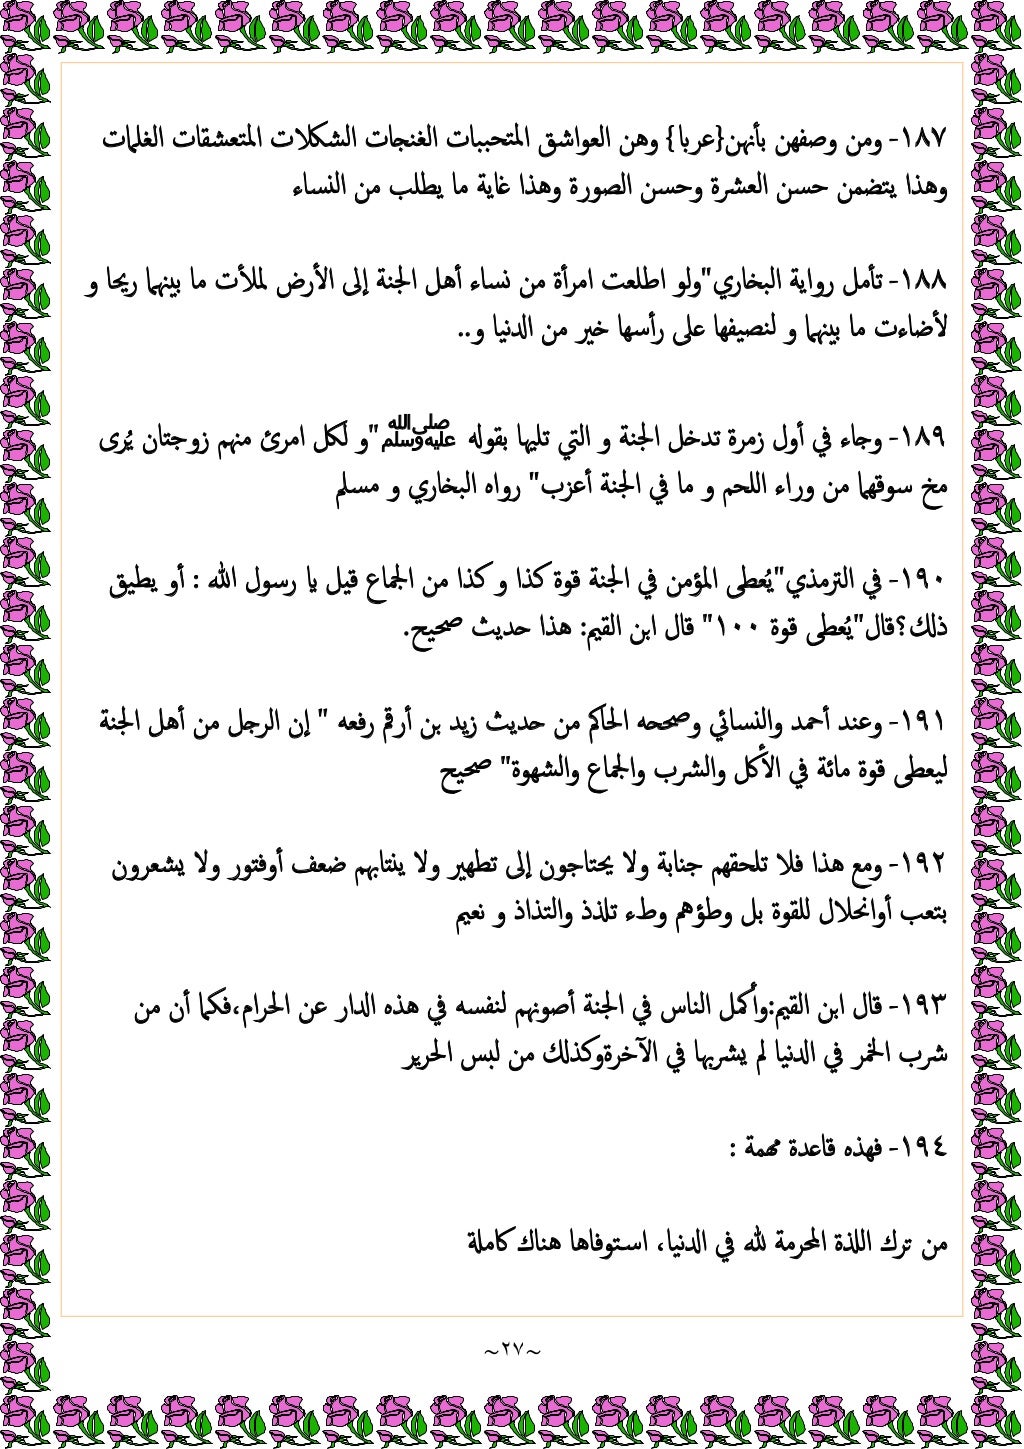 ١٨٧- ومن وصفهن بأنهن{عربا} وهن العواشق المتحببات الغنجات الشكلات المتعشقات الغلمات
وهذا يتضمن حسن العشرة وحسن الصورة وهذا غاية ما يطلب من النساء
١٨٨- تأمل رواية البخاري"ولو اطلعت امرأة من نساء أهل الجنة إلى الأرض لملأت ما بينهما ريحا و
لأضاءت ما بينهما و لنصيفها على رأسها خير من الدنيا و..
١٨٩- وجاء في أول زمرة تدخل الجنة و التي تليها بقوله ﷺ"و لكل امرئ منهم زوجتان يُرى
مخ سوقهما من وراء اللحم و ما في الجنة أعزب" رواه البخاري و مسلم
١٩٠- في الترمذي"يُعطى المؤمن في الجنة قوة كذا و كذا من الجماع قيل يا رسول الله : أو يطيق
ذلك؟قال"يُعطى قوة ١٠٠" قال ابن القيم: هذا حديث صحيح.
١٩١- وعند أحمد والنسائي وصححه الحاكم من حديث زيد بن أرقم رفعه " إن الرجل من أهل الجنة
ليعطى قوة مائة في الأكل والشرب والجماع والشهوة" صحيح
١٩٢- ومع هذا فلا تلحقهم جنابة ولا يحتاجون إلى تطهير ولا ينتابهم ضعف أوفتور ولا يشعرون
بتعب أوانحلال للقوة بل وطؤهم وطء تلذذ والتذاذ و نعيم
١٩٣- قال ابن القيم:وأكمل الناس في الجنة أصونهم لنفسه في هذه الدار عن الحرام،فكما أن من
شرب الخمر في الدنيا لم يشربها في الآخرةوكذلك من لبس الحرير
١٩٤- فهذه قاعدة مهمة :
من ترك اللذة المحرمة لله في الدنيا، استوفاها هناك كاملة
~٢٧~